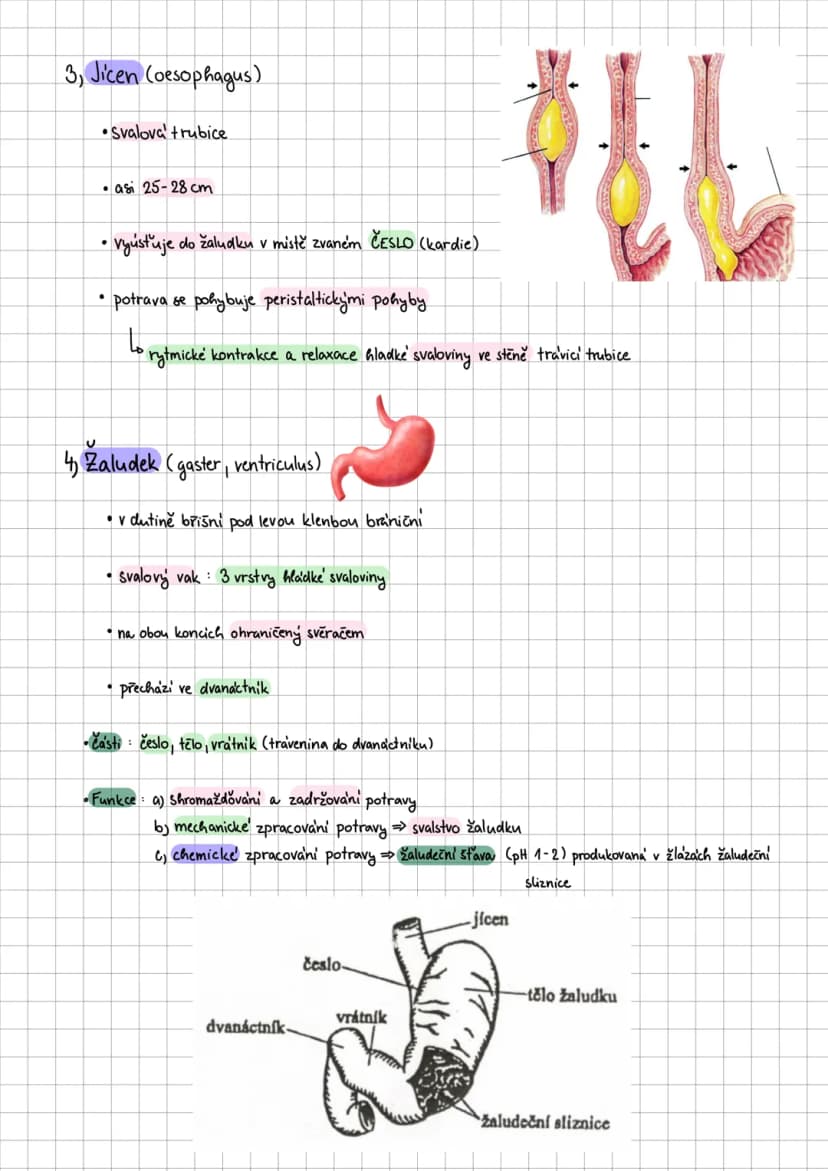 3, Jícen (oesophagus)
• svalová trubice
• asi 25-28 cm
• vyúsťuje do žaludku v místě zvaném ČESLO (kardie)
• potrava se pohybuje peristaltickými pohyby
↳ rytmické kontrakce a relaxace hladké svaloviny ve stěně trávicí trubice
4, Žaludek (gaster, ventriculus)
• v dutině břišní pod levou klenbou brániční
• svalový vak : 3 vrstvy hladké svaloviny
• na obou koncích ohraničený svěračem
• přechází ve dvanáctník
• Části : česlo, tělo, vrátník (trávenina do dvanáctníku)
• Funkce : a) shromažďování a zadržování potravy
b) mechanické zpracování potravy ⇒ svalstvo žaludku
c) chemické zpracování potravy ⇒ žaludeční šťáva (pH 1-2) produkovaná v žlázách žaludeční
sliznice
jícen
česlo
tělo žaludku
vrátník
dvanáctník
žaludeční sliznice